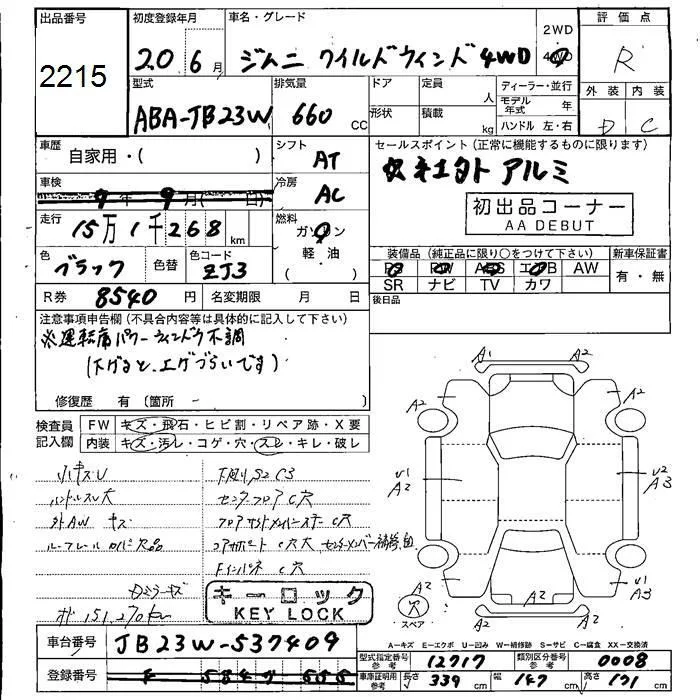 出品番号 初度登録年月 車名・グレード 2WD 評価点
2215 20 6月 ジムニ ワイルドウインド 4WD 4WD R
型式 排気量 ドア 定員 人 ディーラー・並行 外装 内装
ABA-JB23W 660 CC 形状 積載 kg モデル年式 年 D C
ハンドル 左・右
車歴 自家用・( ) シフト AT セールスポイント(正常に機能するものに限ります)
アルミ
車検 年 9月( 日) 冷房 AC 初出品コーナー
AA DEBUT
走行 15万1千268km 燃料 ガソリン
軽・油
( )
色 ブラック 色替 色コード ZJ3 装備品(純正品に限り○をつけて下さい) 新車保証書
PS PW ABS エアB AW 有・無
SR ナビ TV カワ
R券 8540円 名変期限 月 日 後日品
注意事項申告欄(不具合内容等は具体的に記入して下さい)
※運転席パワーウィンドウ不調
(下げると、上げづらいです)
修復歴 有(箇所 - )
検査員記入欄 FW キズ・飛石・ヒビ割・リペア跡・X要
内装 キズ・汚レ・コゲ・穴・スレ・キレ・破レ
A1 A2
A2 A2
小キズU 下廻りS2 C3
ハンドルスレ大 センターフロアC穴
U1 A2 U2 A3
外AWキズ
ルーフレールロバヒ欠品
Fインパネ C穴
Dミラーキズ
キーロック
KEY LOCK
才 151,270km
A2 A2 U1 A3
穴 スペア A2 A2 A2
A-キズ E-エクボ U-凹み W-補修跡 S-サビ C-腐食 XX-交換済
車台番号 JB23W-537409
型式指定番号 参考 12717 類別区分番号 参考 0008
登録番号
車庫証明用 参考 長さ 339cm 幅 147cm 高さ 171cm